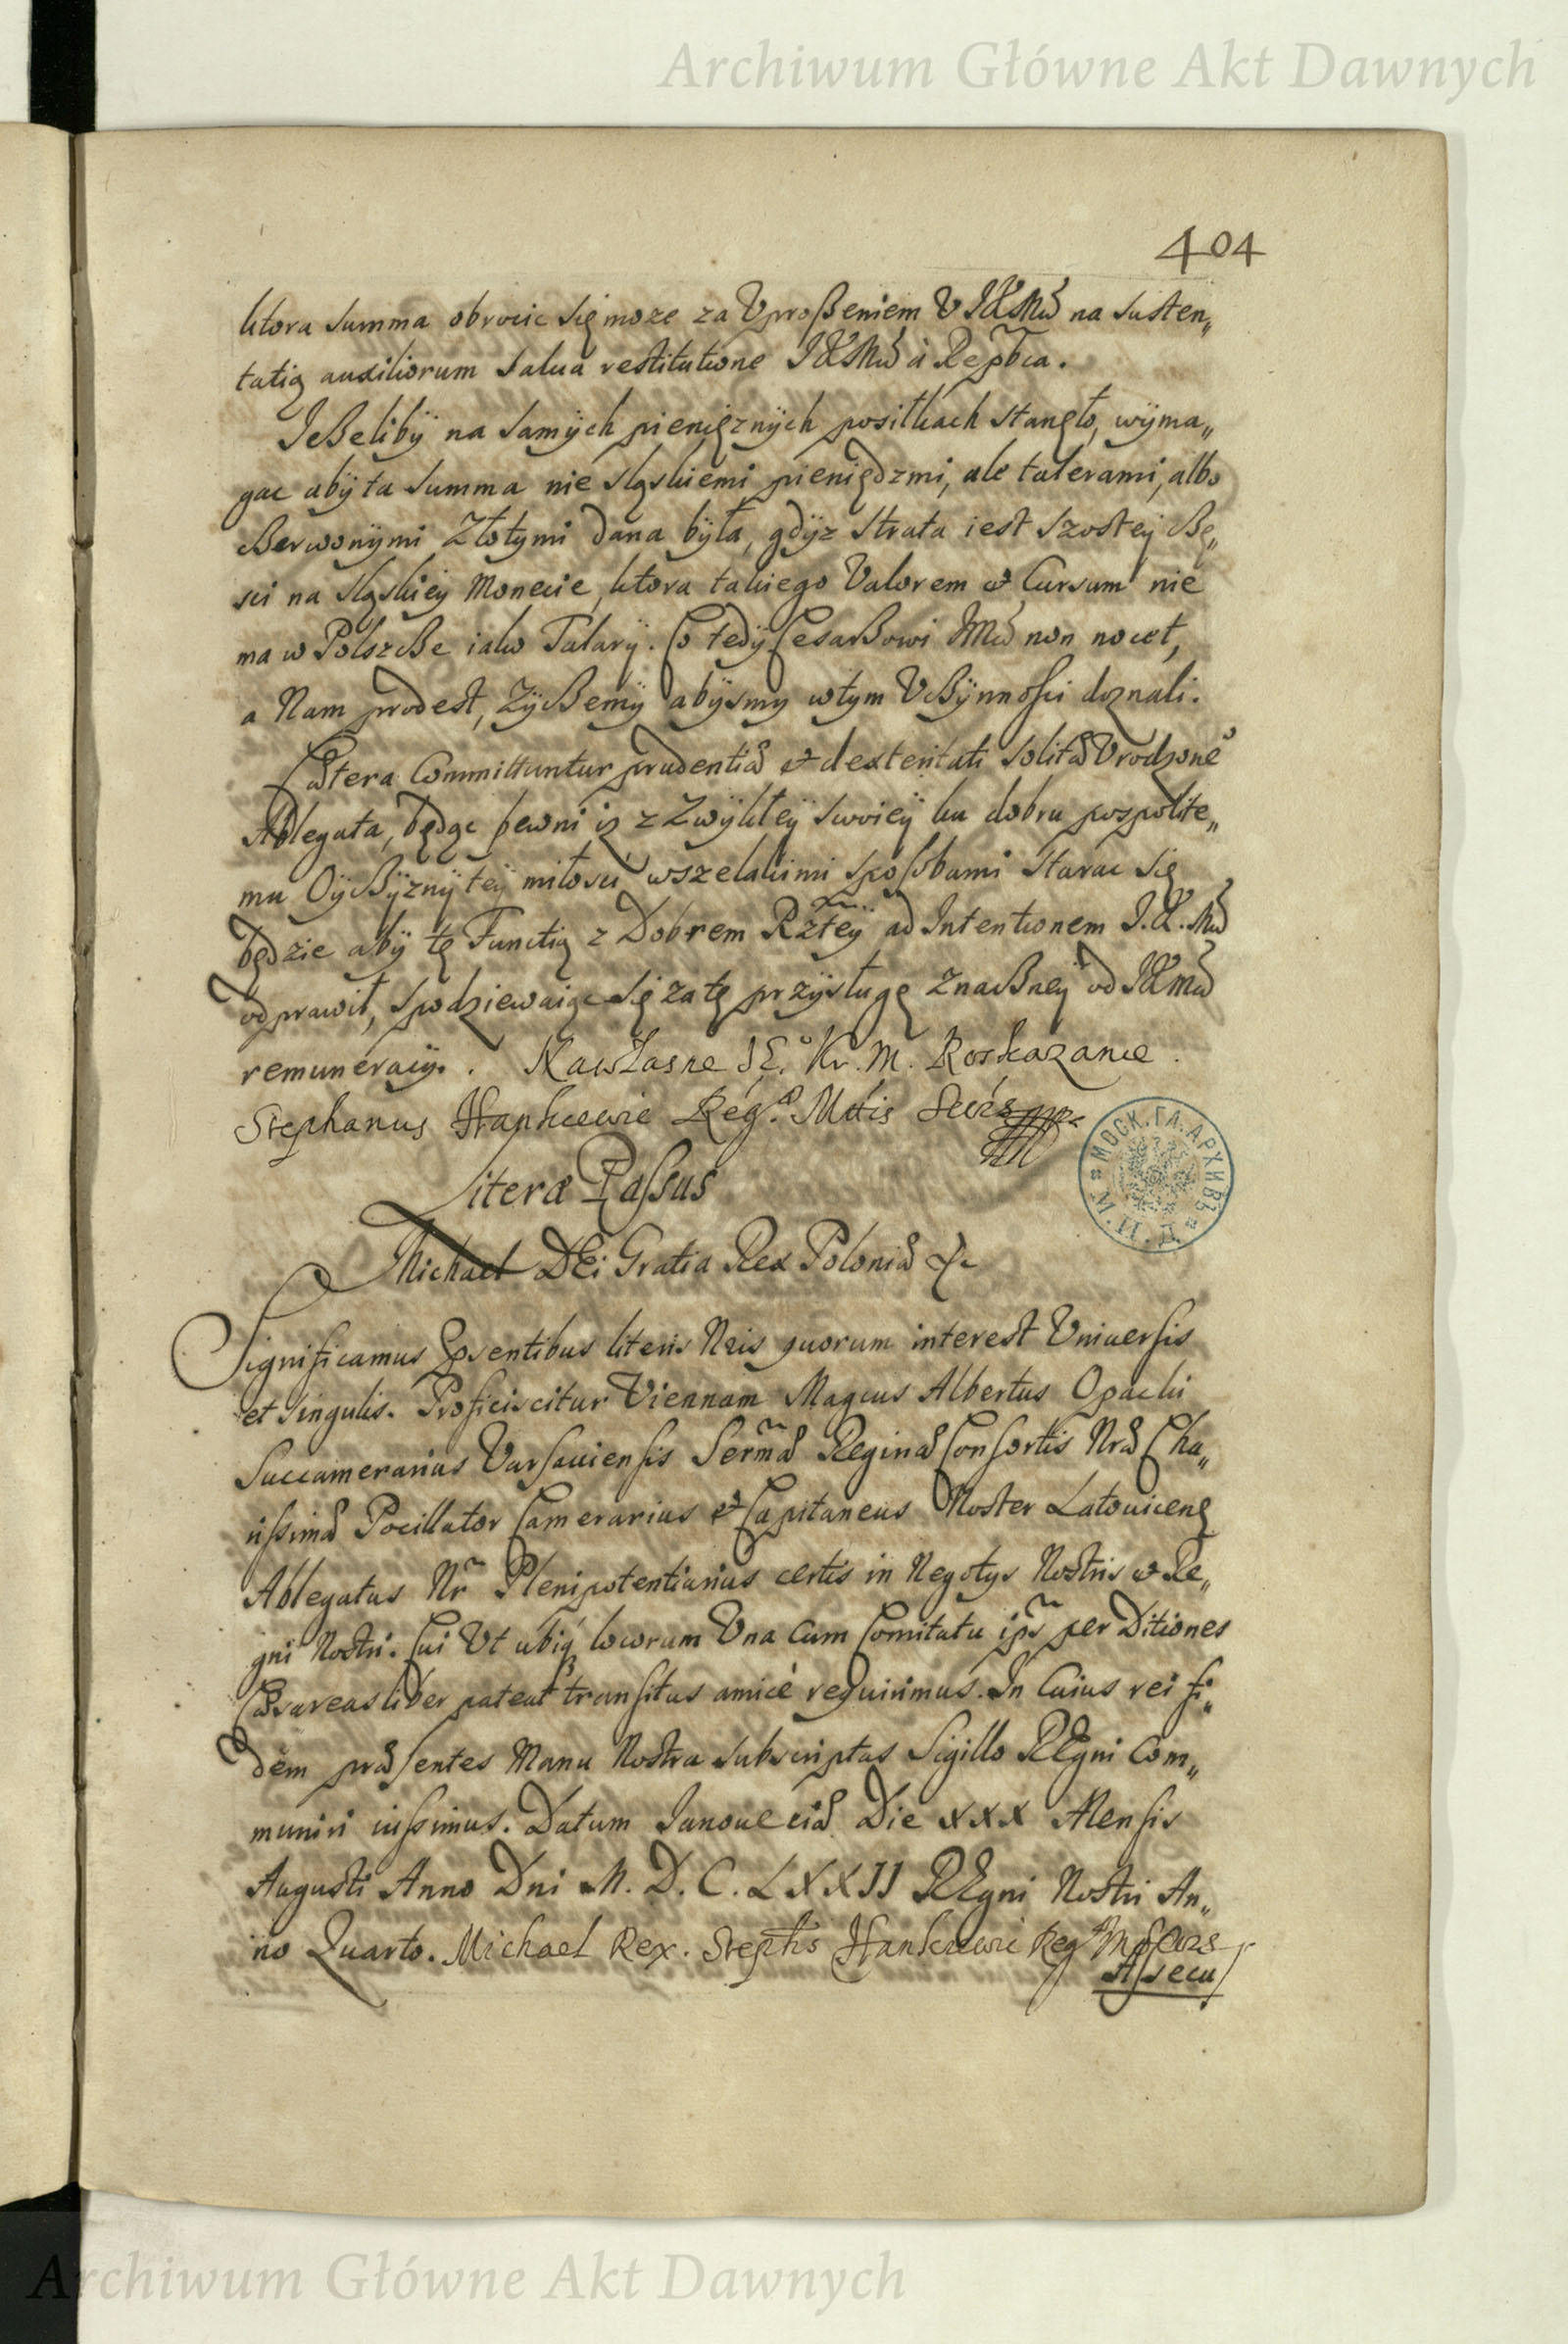 Archiwum Główne Akt Dawnych
404
ktora summa obrocic się moze za Vproßeniem V JKMći na susten„
tatią auxiliorum salua restitutione JKMći à Repbca.
Jeßeliby na samÿch pieniężnÿch posiłkach stanęło, wÿma„
gac abÿ ta summa nie sląskiemi pieniędzmi, ale talerami, albo
Czerwonÿmi Złotymi dana bÿła, gdÿz strata iest szosteÿ Czę„
sci na sląskieÿ Monecie, ktora takiego Valorem et Cursum nie
ma w Polszcze iako Talarÿ. Co tedÿ Cesarzowi JMći non nocet,
a Nam prodest, Zÿczemÿ abÿsmy wtym Vczÿnnosci doznali.
Cætera Committuntur prudentiæ et dexteritati solitæ Vrodzone͛o
Ablegata, będąc pewni iz z Zwÿkłeÿ swoieÿ ku dobru pospolite„
mu Oÿczÿznÿ teÿ miłosci wszelakimi sposobami starac się
będzie abÿ tę Functią z Dobrem Rzteÿ ad Intentionem J.K.Mći
odprawił, spodziewaiąc się za tę przÿsługę Znaczneÿ od JKMći
remuneracÿ. Na własne JE.º Kr. M. Roskazanie.
Stephanus Hankiewic Reg.æ Mttis Secrs mpr
Literæ Passus
Michael DEi Gratia Rex Poloniæ &c
Significamus Pñtibus literis Nris quorum interest Vniuersis
et singulis. Proficiscitur Viennam Magcus Albertus Opacki
Succamerarius Varsauiensis Sermæ Reginæ Consortis Nræ Cha„
rissimæ Pocillator Camerarius et Capitaneus Noster Latouicens
Ablegatus Nr Plenipotentiarius certis in Negotÿs Nostris et Re„
gni Nostri. Cui Vt ubiq locorum Vna cum Comitatu ips per Ditiones
Cæsareas liber pateat transitus amicè requirimus. In Cuius rei fi„
dem præsentes Manu Nostra subscriptas Sigillo REgni Com„
muniri iussimus. Datum Janoueciæ Die XXX Mensis
Augusti Anno Dni M. D. C. LXXII REgni Nostri An„
no Quarto. Michael Rex. Stephs Hankiewic Reg. M Secrs
Assecu
МОСК. ГЛ. АРХИВЪ М. И. Д.
Archiwum Główne Akt Dawnych